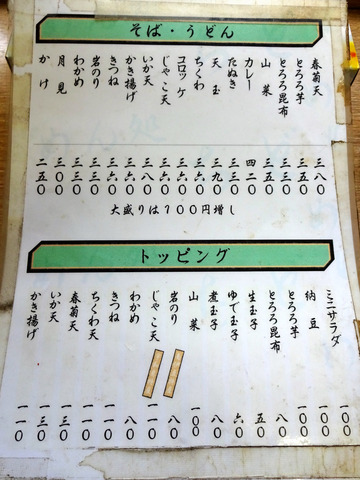 そば・うどん
春菊天 三八〇
とろろ芋 三五〇
とろろ昆布 三三〇
山菜 三五〇
カレー 四二〇
たぬき 三三〇
天玉 三九〇
ちくわ 三六〇
コロッケ 三六〇
じゃこ天 三六〇
いか天 三八〇
かき揚げ 三六〇
きつね 三六〇
岩のり 三三〇
わかめ 三三〇
月見 三〇〇
かけ 二五〇
大盛りは100円増し
トッピング
ミニサラダ 一〇〇
納豆 一〇〇
とろろ芋 一〇〇
とろろ昆布 八〇
生玉子 五〇
ゆで玉子 六〇
煮玉子 八〇
山菜 一〇〇
岩のり 八〇
じゃこ天 一一〇
わかめ 八〇
きつね 一一〇
ちくわ天 一一〇
春菊天 一三〇
いか天 一三〇
かき揚げ 一一〇